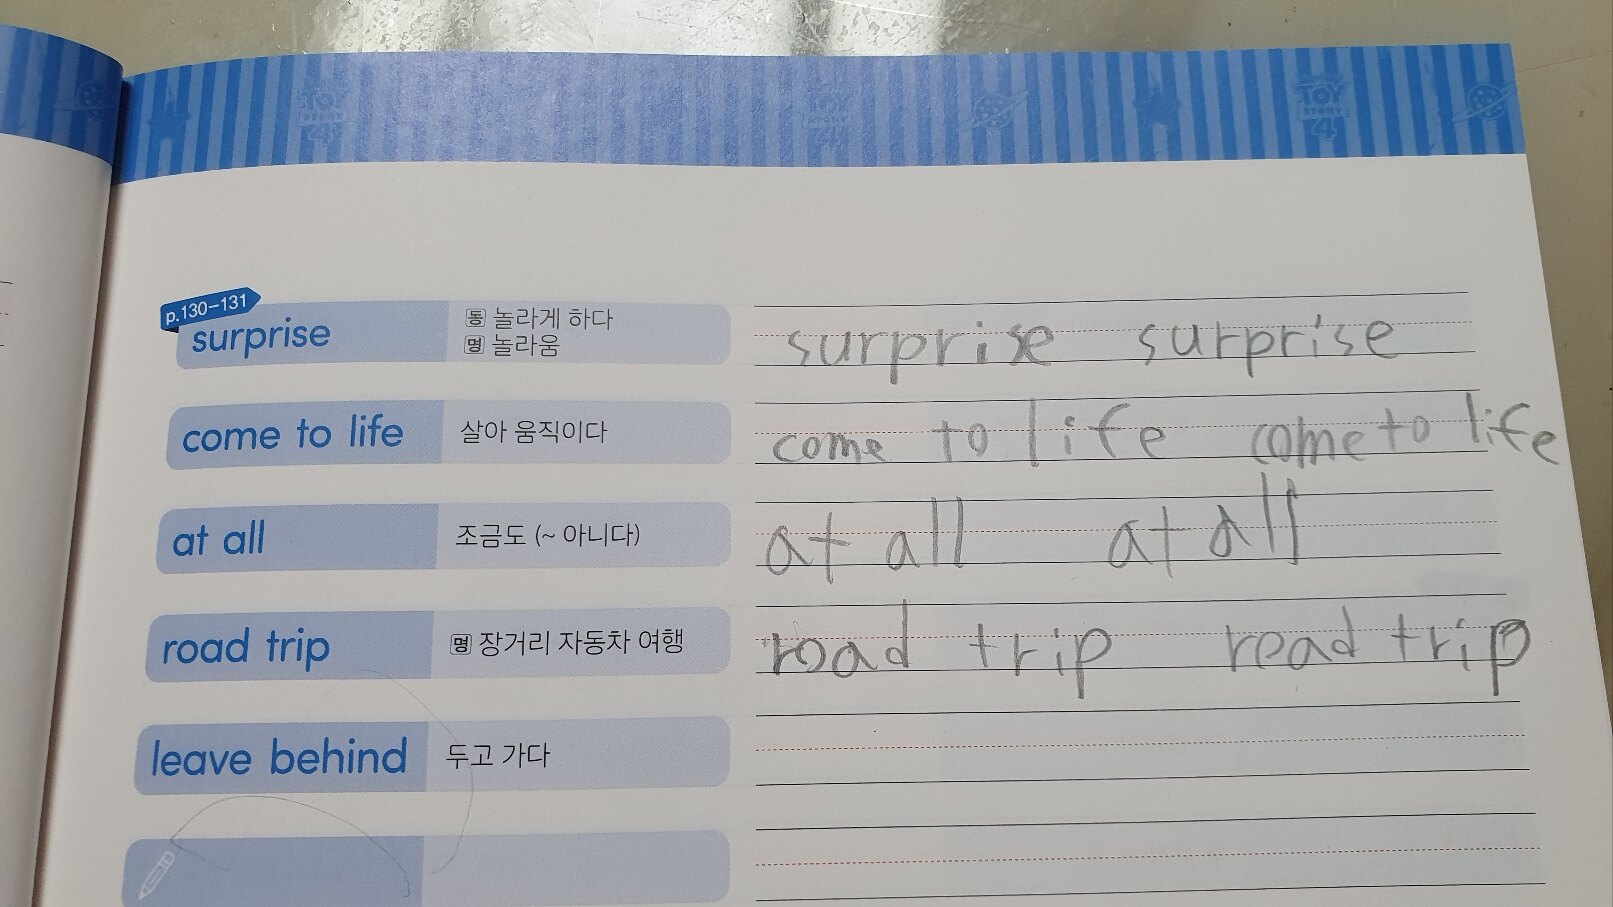 TOY STORY 4
TOY STORY 4
TOY STORY 4
p.130-131
surprise
동 놀라게 하다
명 놀라움
surprise surprise
come to life
살아 움직이다
come to life come to life
at all
조금도 (~ 아니다)
at all at all
road trip
명 장거리 자동차 여행
road trip road trip
leave behind
두고 가다